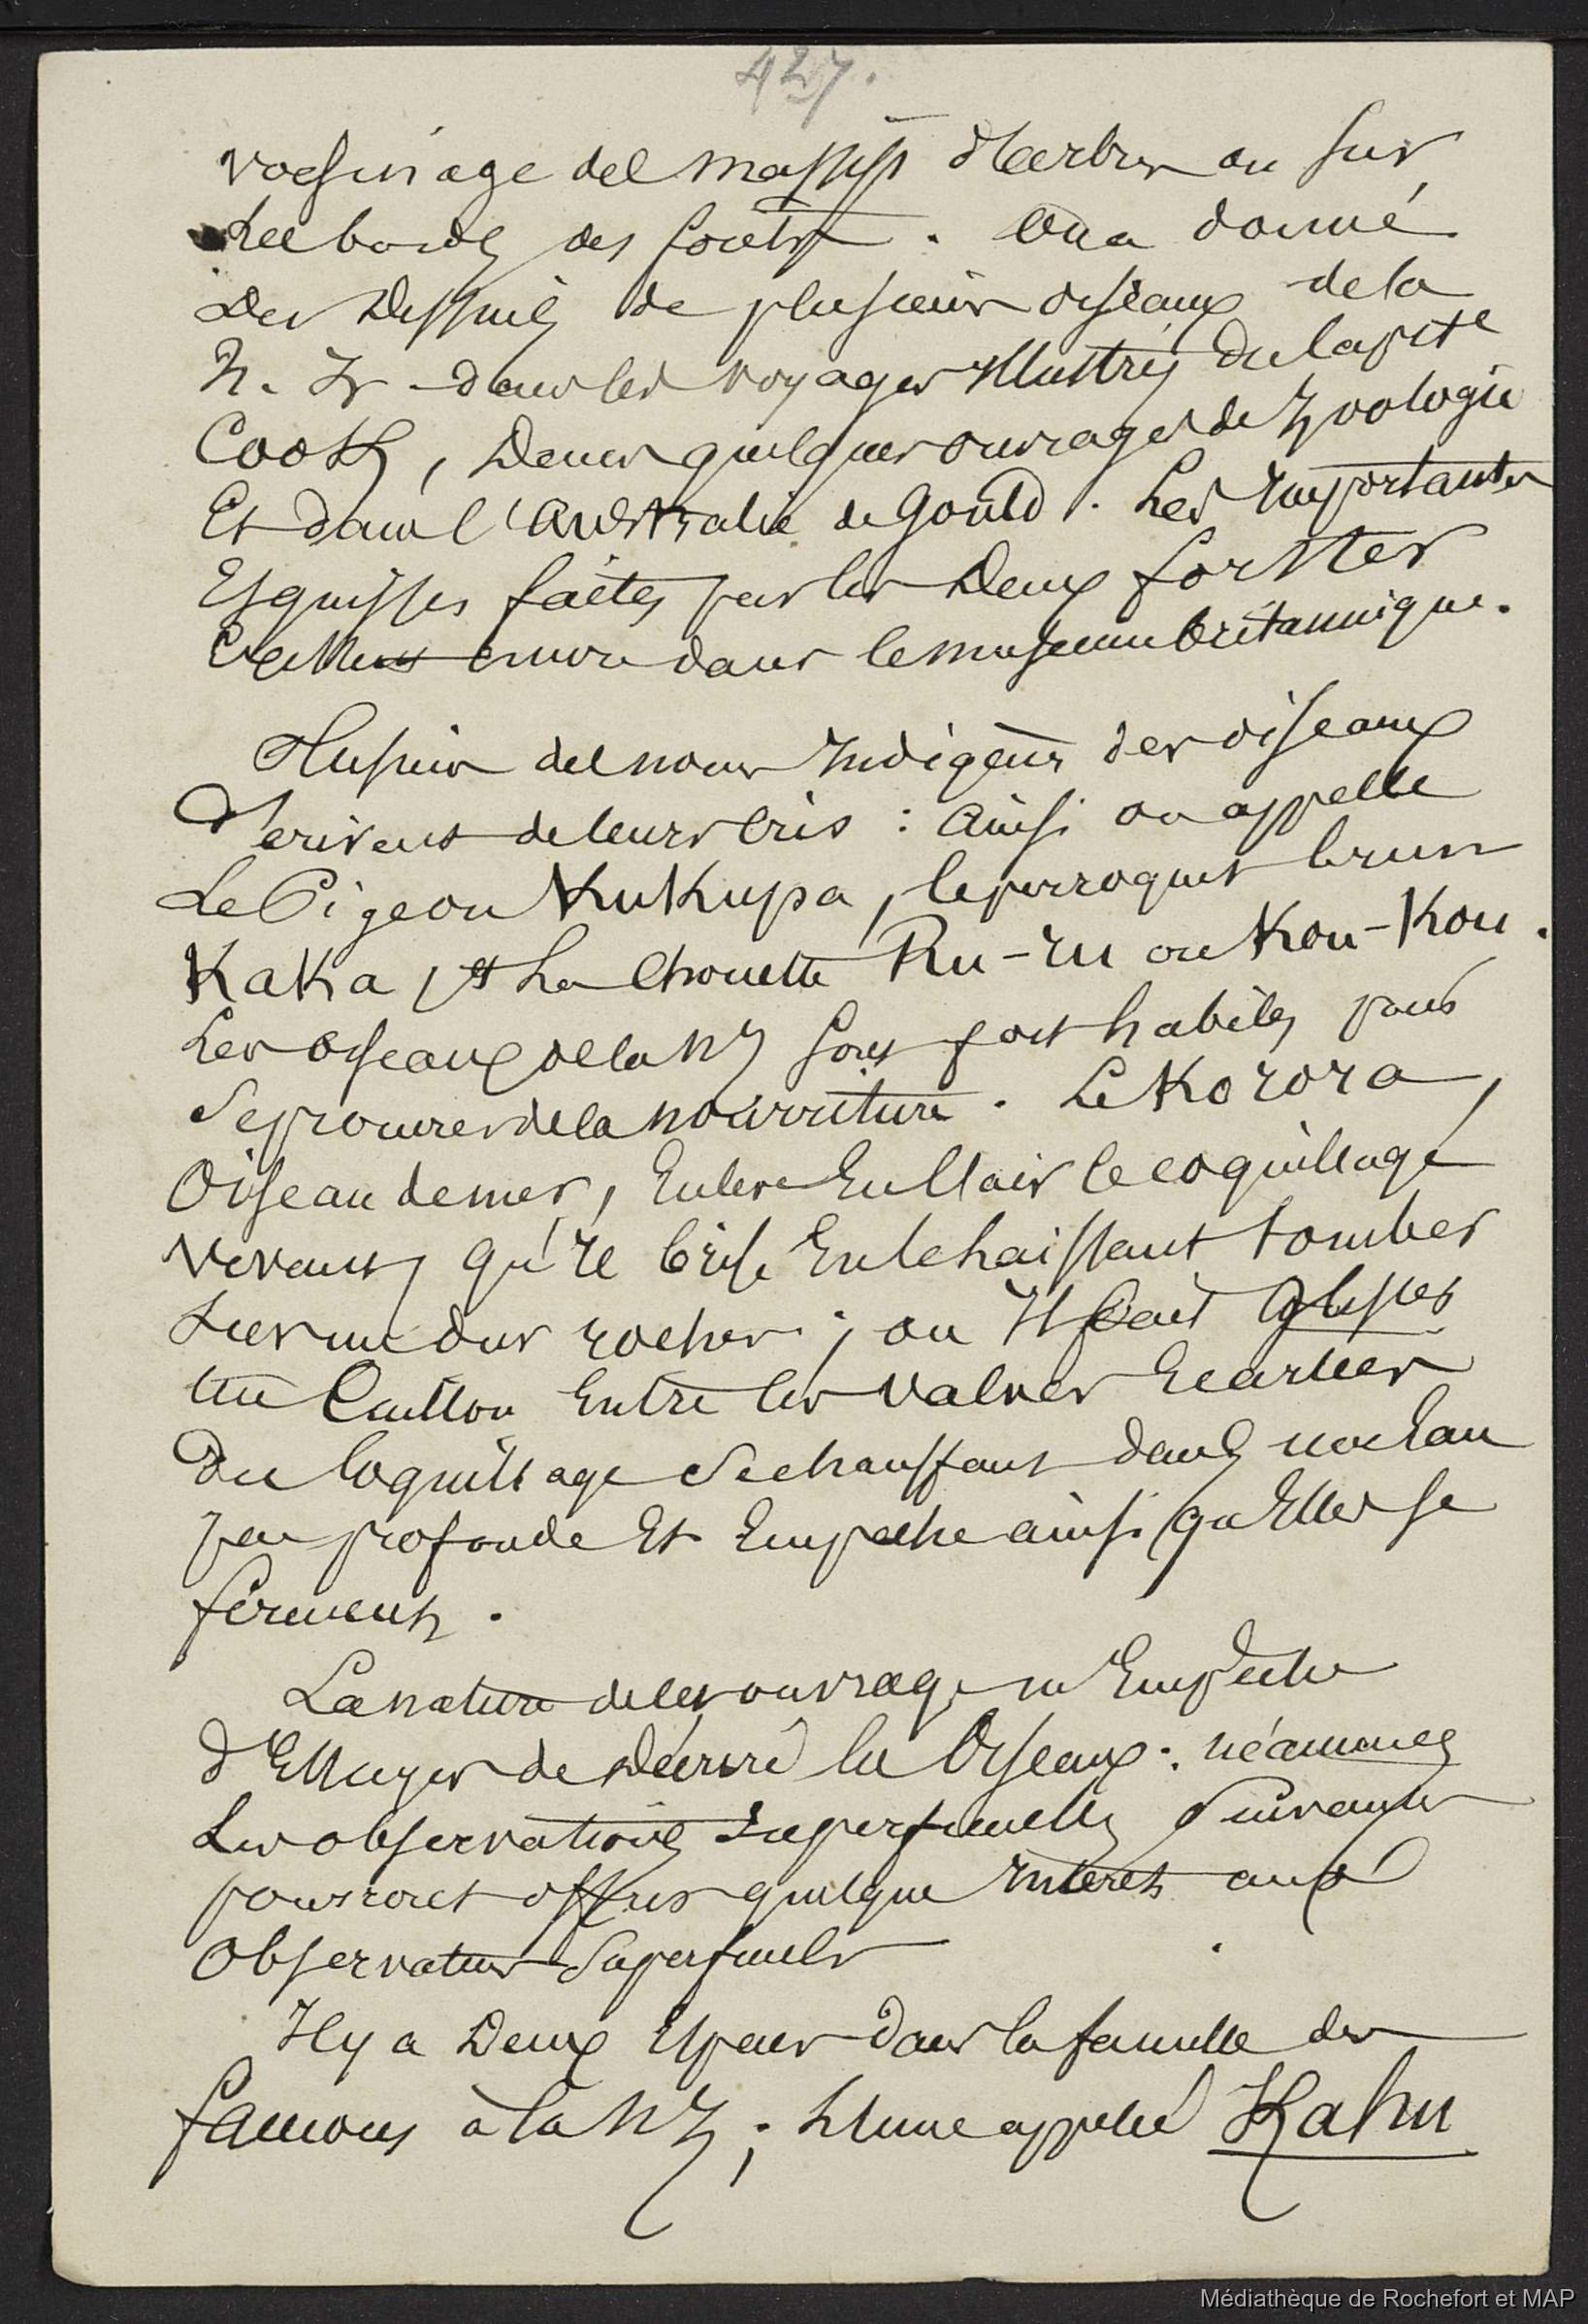 427.
voisinage des massifs d'arbres ou sur
les bords des forêts. On a donné
Des Dessins de plusieurs oiseaux de la
N. Z. dans les voyages Illustrés du Capite
Cook, Dans quelques ouvrages de Zoologie
Et dans l'Australie de Gould. Les Importantes
Esquisses faites par les Deux forster
encore dans le museum britannique.
Plusieurs des noms Indigènes des oiseaux
Dérivent de leurs cris : Ainsi on appelle
Le Pigeon KuKupa, le perroquet brun
KaKa, et La Chouette Ru-ru ou Kou-Kou.
Les oiseaux de la NZ sont fort habiles pour
Se procurer de la nourriture. Le Korora,
Oiseau de mer, Enleve En l'air le coquillage
vivant, qu'Il brise En le laissant tomber
Sur un dur rocher ; ou Il fait glisser
un Caillou Entre les valves Ecartées
Du Coquillage Se chauffant dans une Eau
peu profonde Et Empêche ainsi qu'Elles se
ferment.
La nature de cet ouvrage m'Empêche
d'Essayer de Décrire les Oiseaux : néanmoins
Les observations Superficielles Suivantes
pourront offrir quelque Intérêt aux
Observateurs Superficiels
Il y a Deux Espèces Dans la famille des
faucons à la NZ ; L'une appelée Kahu
Médiathèque de Rochefort et MAP